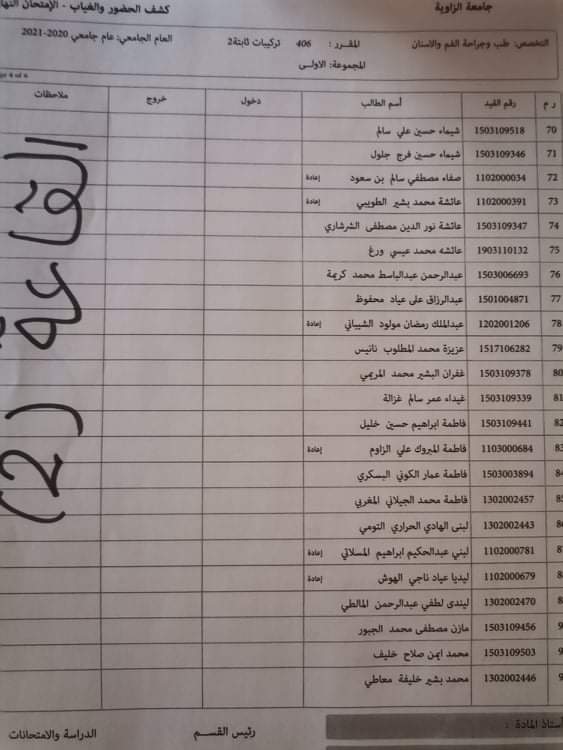 جامعة الزاوية
كشف الحضور والغياب - الإمتحان النها
التخصص: طب وجراحة الفم والاسنان المقرر : 406 تركيبات ثابتة2 العام الجامعي: عام جامعي 2020-2021
المجموعة: الاولى
Page 4 of 6
ر م رقم القيد أسم الطالب دخول خروج ملاحظات
70 1503109518 شيماء حسين علي سالم
71 1503109346 شيماء حسين فرج جلول
72 1102000034 صفاء مصطفي سالم بن سعود إعادة
73 1102000391 عائشة محمد بشير الطويبي إعادة
74 1503109347 عائشة نور الدين مصطفى الشرشاري
75 1903110132 عائشه محمد عيسي ورغ
76 1503006693 عبدالرحمن عبدالباسط محمد كريمة
77 1501004871 عبدالرزاق على عياد محفوظ
78 1202001206 عبدالملك رمضان مولود الشيباني إعادة
79 1517106282 عزيزة محمد المطلوب نانيس
80 1503109378 غفران البشير محمد المريمي
81 1503109339 غيداء عمر سالم غزالة
82 1503109441 فاطمة ابراهيم حسين خليل
83 1103000684 فاطمة المبروك علي الزاوم إعادة
84 1503003894 فاطمة عمار الكوني البسكري
85 1302002457 فاطمة محمد الجيلاني المغربي
8 1302002443 لبنى الهادي الحراري التومي
8 1102000781 لبني عبدالحكيم ابراهيم المسلاتي إعادة
8 1102000679 ليديا عياد ناجي الهوش إعادة
8 1302002470 ليندى لطفي عبدالرحمن المالطي
9 1503109456 مازن مصطفى محمد الجبور
9 1503109503 محمد ايمن صلاح خليف
9 1302002446 محمد بشير خليفة معاطي
القاعة (2)
أستاذ المادة :
رئيس القسم
الدراسة والامتحانات